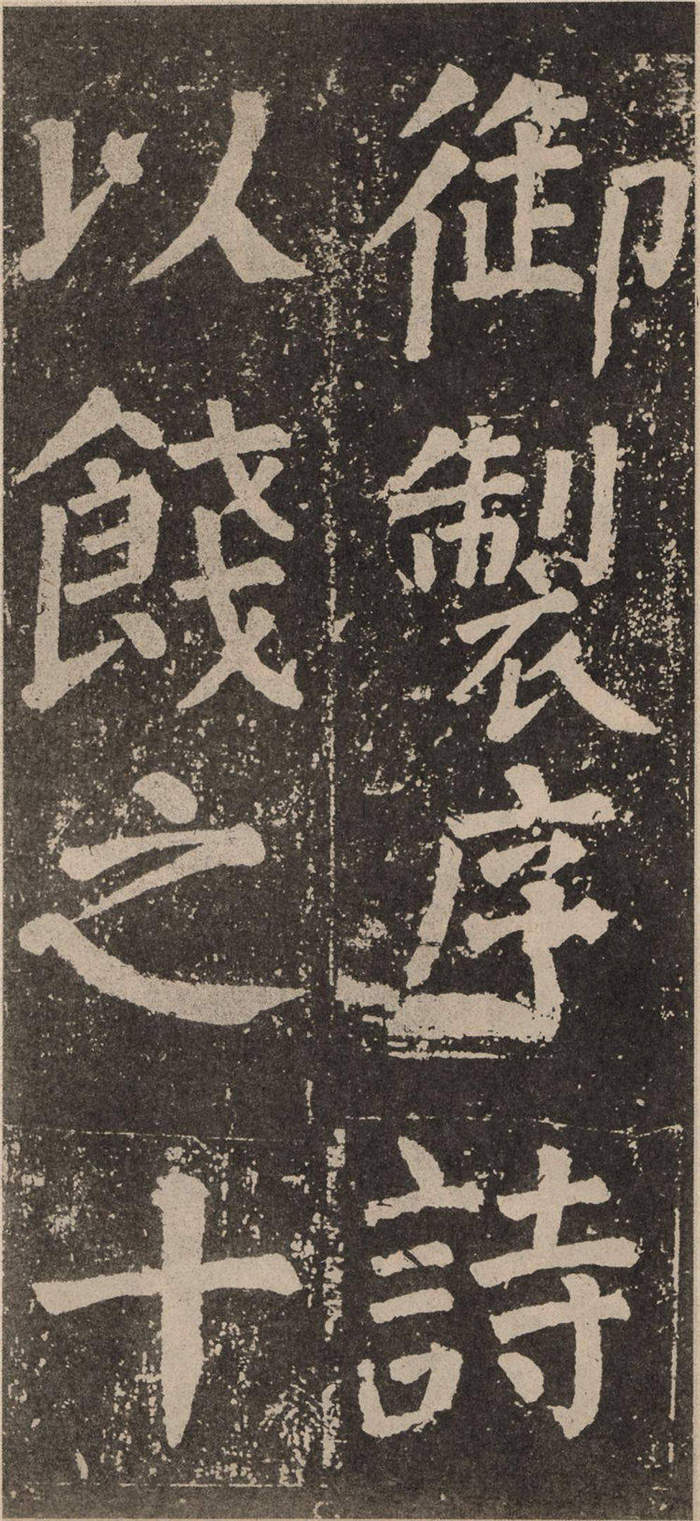 御製序詩
以餞之十